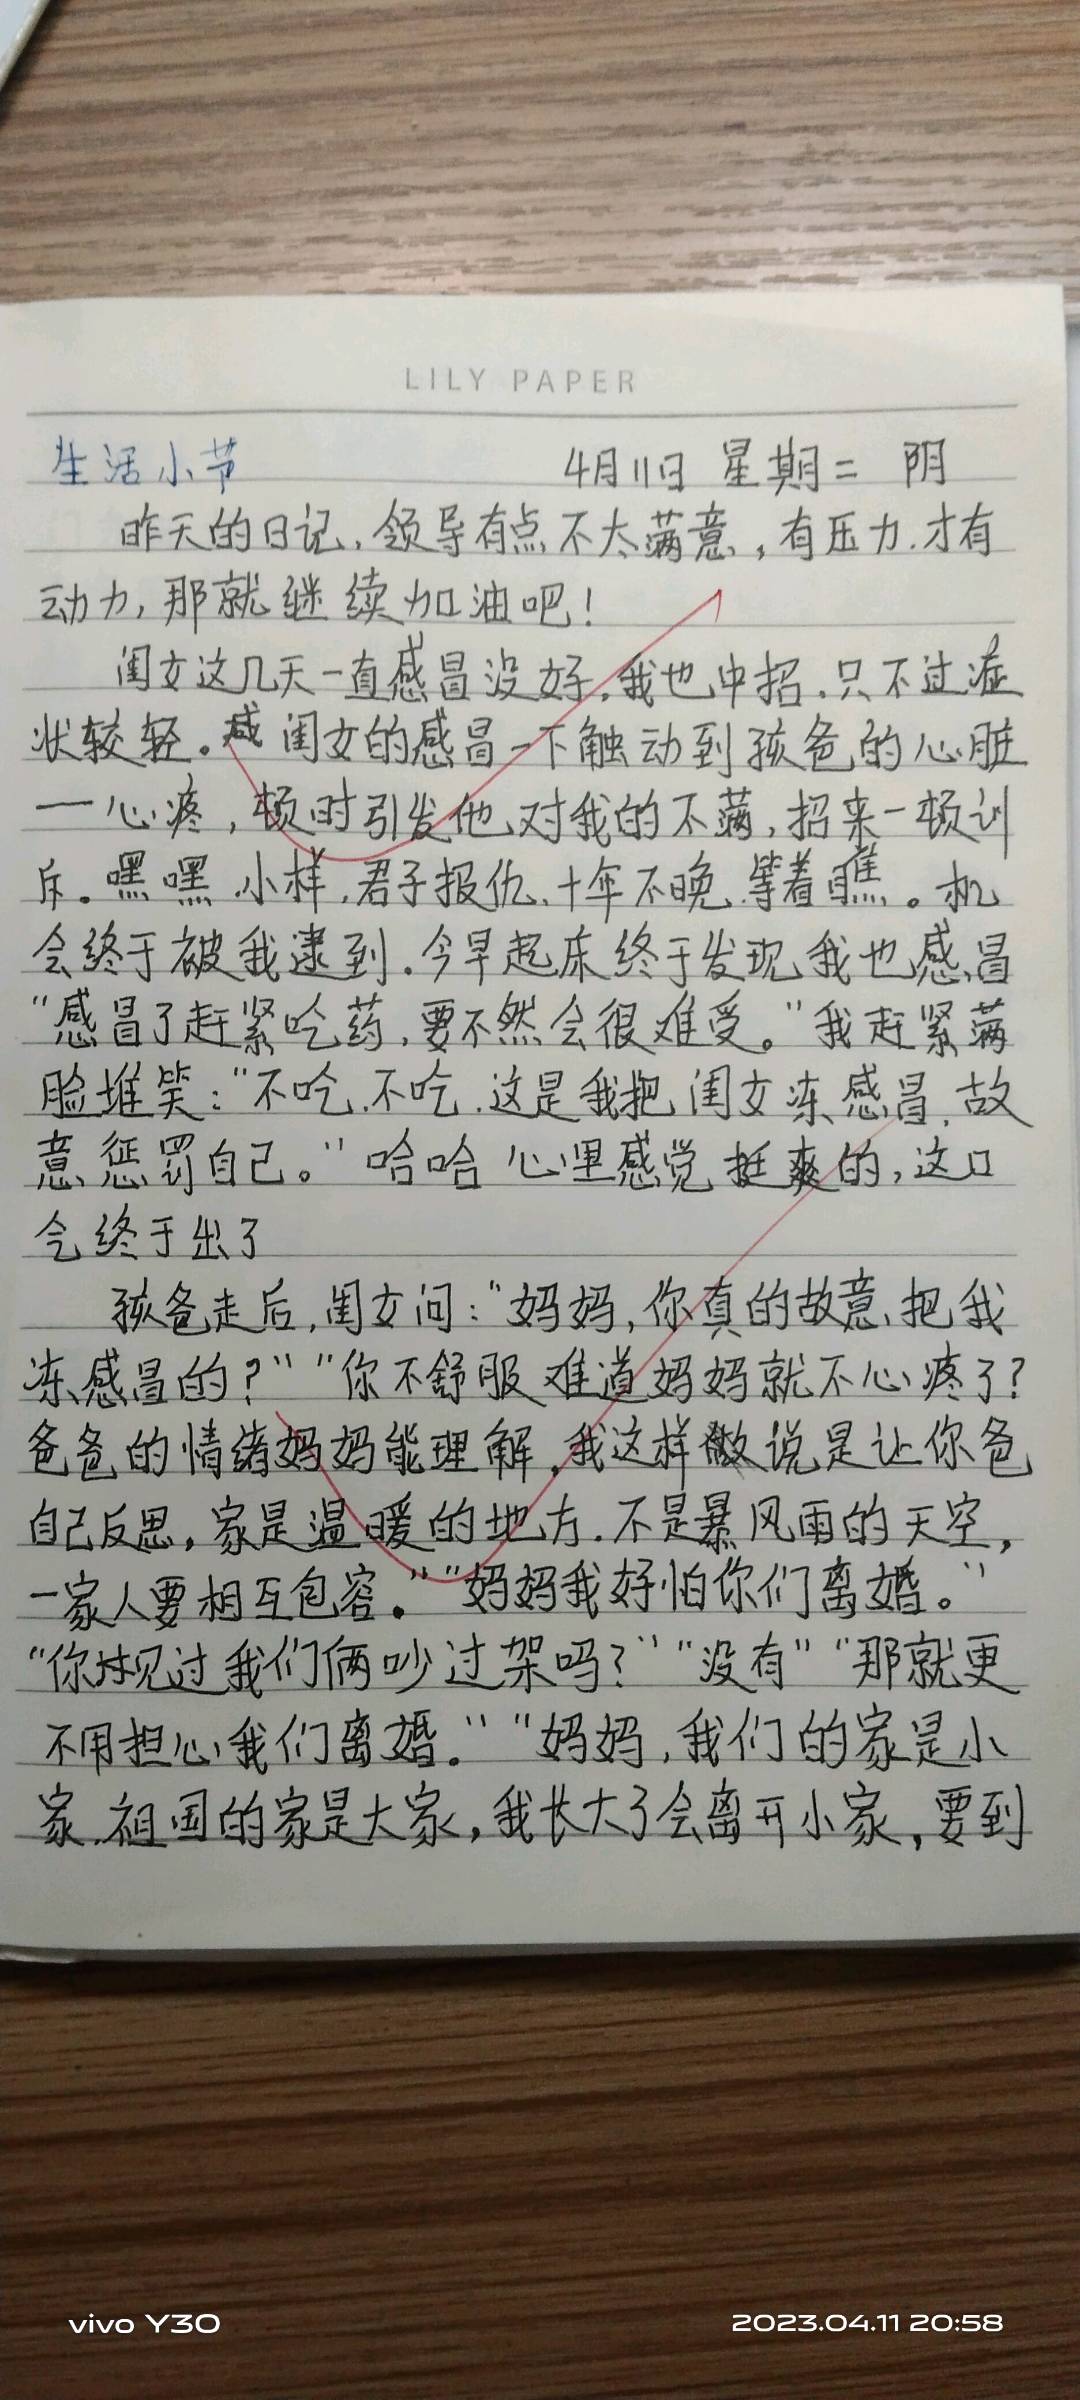 LILY PAPER
生活小节 4月11日 星期二 阴
昨天的日记,领导有点不太满意,有压力.才有
动力,那就继续加油吧!
闺女这几天一直感冒没好,我也中招.只不过症
状较轻。闺女的感冒一下触动到孩爸的心脏
一心疼,顿时引发他对我的不满,招来一顿训
斥。嘿嘿.小样,君子报仇、十年不晚.等着瞧。机
会终于被我逮到.今早起床终于发现我也感冒
“感冒了赶紧吃药,要不然会很难受。”我赶紧满
脸堆笑:“不吃.不吃.这是我把闺女冻感冒,故
意惩罚自己。”哈哈 心里感觉挺爽的,这口
气终于出了
孩爸走后,闺女问:“妈妈,你真的故意把我
冻感冒的?”“你不舒服难道妈妈就不心疼了?
爸爸的情绪妈妈能理解,我这样说是让你爸
自己反思,家是温暖的地方.不是暴风雨的天空,
一家人要相互包容。”“妈妈我好怕你们离婚。”
“你见过我们俩吵过架吗?”“没有”“那就更
不用担心我们离婚。”“妈妈,我们的家是小
家.祖国的家是大家,我长大了会离开小家,要到
vivo Y30 2023.04.11 20:58